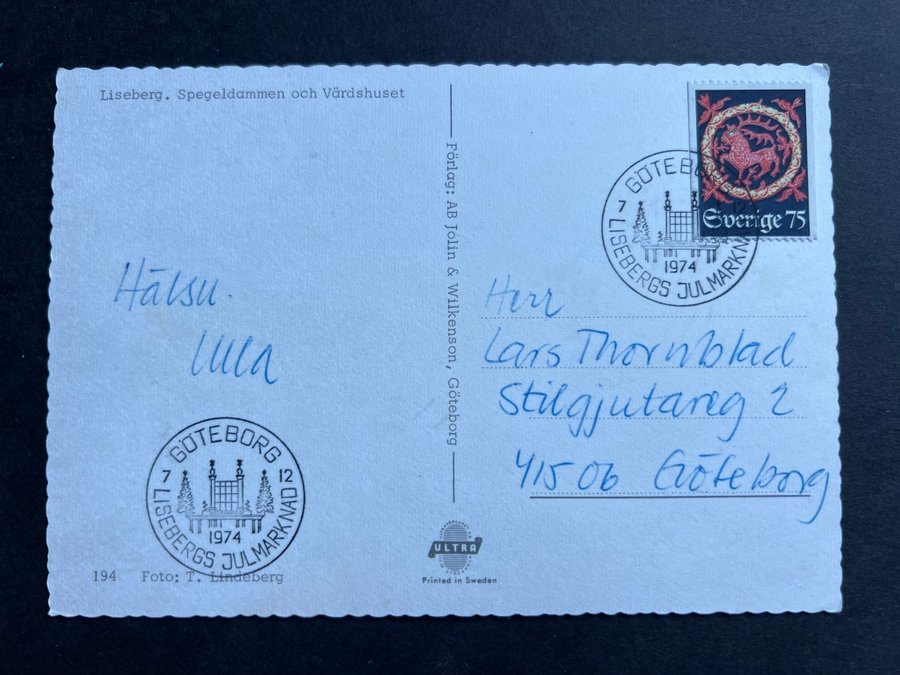 Liseberg. Spegeldammen och Värdshuset
Hälsn.
Ulla
GÖTEBORG
7 12
1974
LISEBERGS JULMARKNAD
194 Foto: T. Lindeberg
Förlag: AB Jolin & Wilkenson, Göteborg
ULTRA
Printed in Sweden
Sverige 75
GÖTEBORG
7 12
1974
LISEBERGS JULMARKNAD
Herr
Lars Thornblad
Stilgjutareg 2
415 06 Göteborg